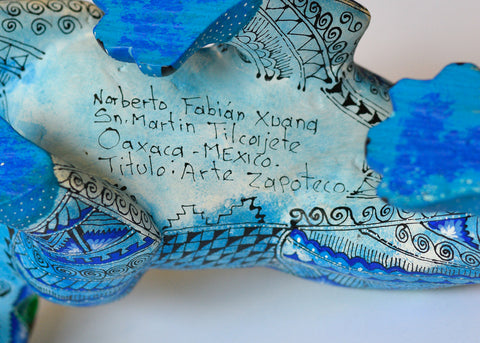 Norberto Fabián Xuana
Sn. Martin Tilcajete
Oaxaca - MEXICO.
. Titulo: Arte Zapoteco.